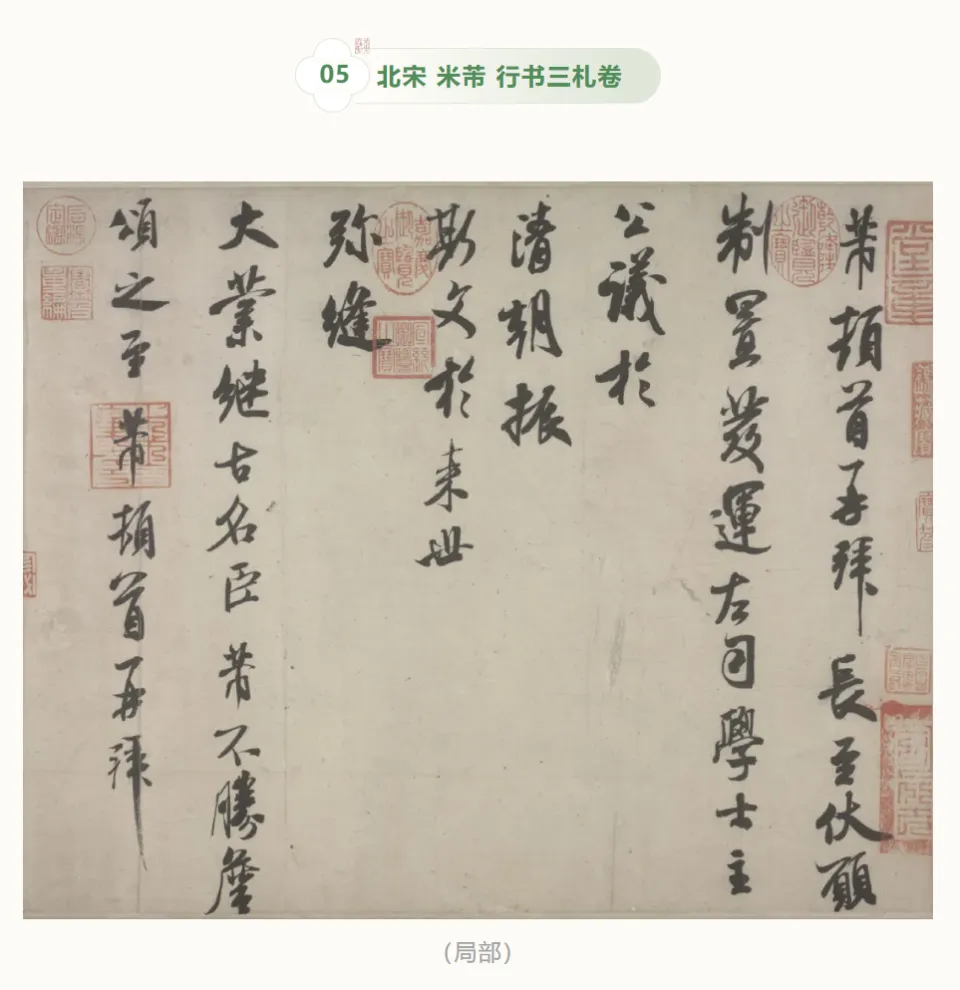 05 北宋 米芾 行书三札卷
芾頓首再拜 長至伏願
制置發運左司學士主
公議於
清朝振
斯文於来世
弥縫
大業継古名臣芾不勝詹
頌之至 芾頓首再拜
（局部）